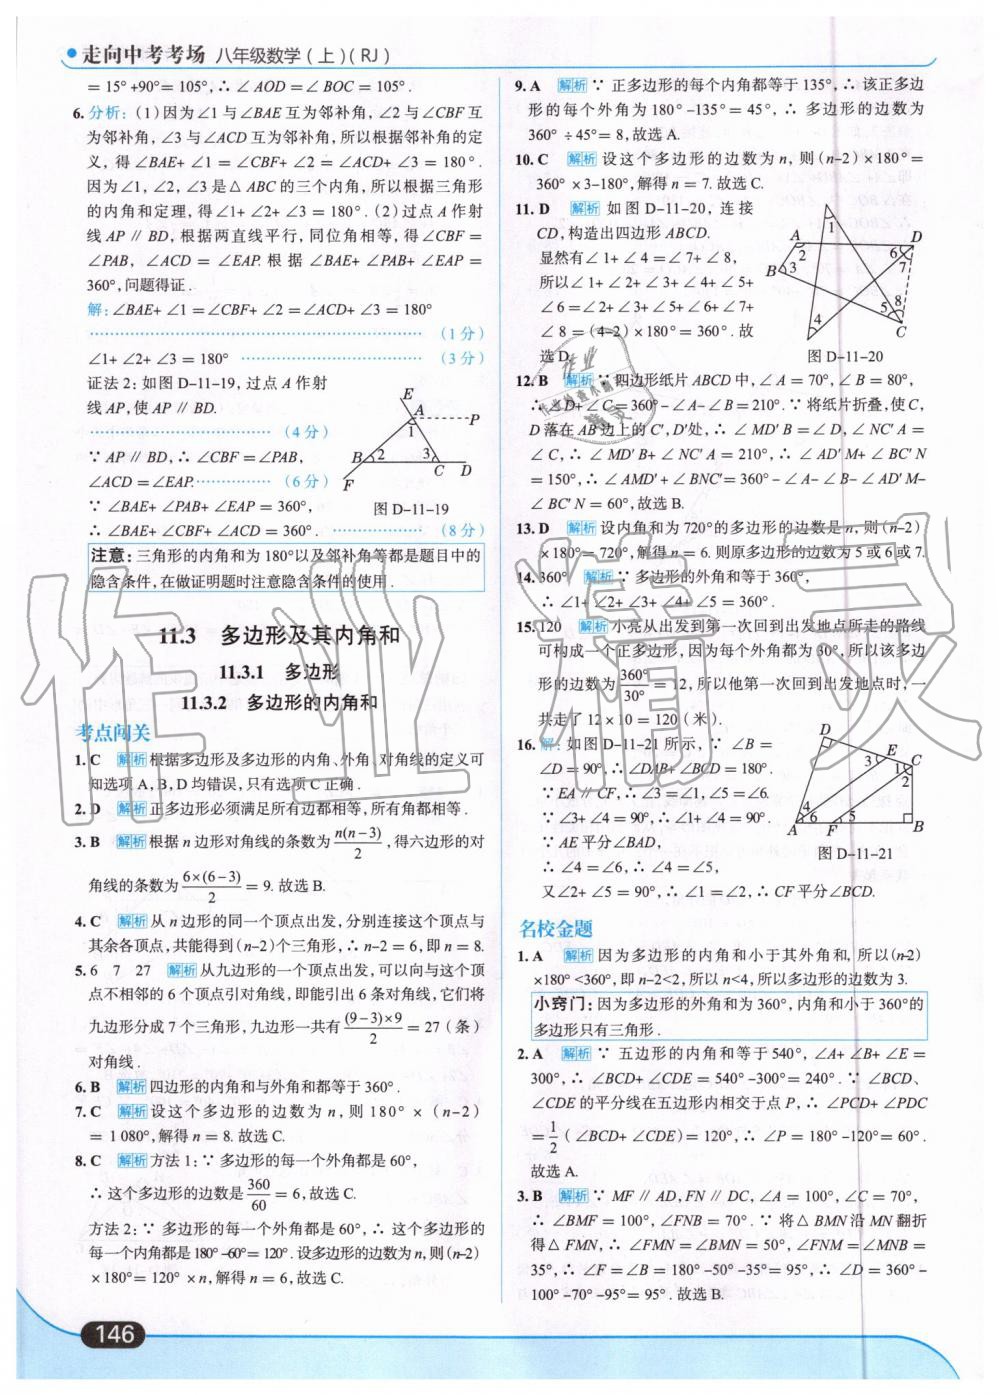 走向中考考场 八年级数学(上)(RJ)
=15°+90°=105°,∴∠AOD=∠BOC=105°.
6.分析:(1)因为∠1与∠BAE互为邻补角,∠2与∠CBF互
为邻补角,∠3与∠ACD互为邻补角,所以根据邻补角的定
义,得∠BAE+∠1=∠CBF+∠2=∠ACD+∠3=180°.
因为∠1,∠2,∠3是△ABC的三个内角,所以根据三角形
的内角和定理,得∠1+∠2+∠3=180°.(2)过点A作射
线AP∥BD,根据两直线平行,同位角相等,得∠CBF=
∠PAB,∠ACD=∠EAP.根据∠BAE+∠PAB+∠EAP=
360°,问题得证.
解:∠BAE+∠1=∠CBF+∠2=∠ACD+∠3=180°
……(1分)
∠1+∠2+∠3=180° ……(3分)
证法2:如图D-11-19,过点A作射
线AP,使AP∥BD.
……(4分)
∵AP∥BD,∴∠CBF=∠PAB,
∠ACD=∠EAP.……(6分)
∵∠BAE+∠PAB+∠EAP=360°,
∴∠BAE+∠CBF+∠ACD=360°. ……(8分)
E A P 1 B 2 3 C D F
图D-11-19
注意:三角形的内角和为180°以及邻补角等都是题目中的
隐含条件,在做证明题时注意隐含条件的使用.
11.3 多边形及其内角和
11.3.1 多边形
11.3.2 多边形的内角和
考点闯关
1.C 解析 根据多边形及多边形的内角、外角、对角线的定义可
知选项A,B,D均错误,只有选项C正确.
2.D 解析 正多边形必须满足所有边都相等,所有角都相等.
3.B 解析 根据n边形对角线的条数为n(n-3)/2,得六边形的对
角线的条数为6×(6-3)/2=9.故选B.
4.C 解析 从n边形的同一个顶点出发,分别连接这个顶点与
其余各顶点,共能得到(n-2)个三角形,∴n-2=6,即n=8.
5.6 7 27 解析 从九边形的一个顶点出发,可以向与这个顶
点不相邻的6个顶点引对角线,即能引出6条对角线,它们将
九边形分成7个三角形,九边形一共有(9-3)×9/2=27(条)
对角线.
6.B 解析 四边形的内角和与外角和都等于360°.
7.C 解析 设这个多边形的边数为n,则180°×(n-2)
=1 080°,解得n=8.故选C.
8.C 解析 方法1:∵多边形的每一个外角都是60°,
∴这个多边形的边数是360/60=6,故选C.
方法2:∵多边形的每一个外角都是60°,∴这个多边形的
每一个内角都是180°-60°=120°.设多边形的边数为n,则(n-2)
×180°=120°×n,解得n=6,故选C.
9.A 解析 ∵正多边形的每个内角都等于135°,∴该正多边
形的每个外角为180°-135°=45°,∴多边形的边数为
360°÷45°=8,故选A.
10.C 解析 设这个多边形的边数为n,则(n-2)×180°=
360°×3-180°,解得n=7.故选C.
11.D 解析 如图D-11-20,连接
CD,构造出四边形ABCD.
显然有∠1+∠4=∠7+∠8,
所以∠1+∠2+∠3+∠4+∠5+
∠6=∠2+∠3+∠5+∠6+∠7+
∠8=(4-2)×180°=360°.故
选D.
1 A 2 B 3 4 5 8 C 6 7 D
图D-11-20
12.B 解析 ∵四边形纸片ABCD中,∠A=70°,∠B=80°,
∴∠D+∠C=360°-∠A-∠B=210°.∵将纸片折叠,使C,
D落在AB边上的C′,D′处,∴∠MD′B=∠D,∠NC′A=
∠C,∴∠MD′B+∠NC′A=210°,∴∠AD′M+∠BC′N
=150°,∴∠AMD′+∠BNC′=360°-∠A-∠B-∠AD′M-
∠BC′N=60°,故选B.
13.D 解析 设内角和为720°的多边形的边数是n,则(n-2)
×180°=720°,解得n=6.则原多边形的边数为5或6或7.
14.360° 解析 ∵多边形的外角和等于360°,
∴∠1+∠2+∠3+∠4+∠5=360°.
15.120 解析 小亮从出发到第一次回到出发地点所走的路线
可构成一个正多边形,因为每个外角都为30°,所以该多边
形的边数为360°/30°=12,所以他第一次回到出发地点时,一
共走了12×10=120(米).
16.解:如图D-11-21所示,∵∠B=
∠D=90°,∴∠DAB+∠BCD=180°.
∵EA∥CF,∴∠3=∠1,∠5=∠6.
∵∠3+∠4=90°,∴∠1+∠4=90°.
∵AE平分∠BAD,
∴∠4=∠6,∴∠4=∠5,
又∠2+∠5=90°,∴∠1=∠2,∴CF平分∠BCD.
D E 3 1 C 2 4 6 5 A F B
图D-11-21
名校金题
1.A 解析 因为多边形的内角和小于其外角和,所以(n-2)
×180°<360°,即n-2<2,所以n<4,所以多边形的边数为3.
小窍门:因为多边形的外角和为360°,内角和小于360°的
多边形只有三角形.
2.A 解析 ∵五边形的内角和等于540°,∠A+∠B+∠E=
300°,∴∠BCD+∠CDE=540°-300°=240°.∵∠BCD、
∠CDE的平分线在五边形内相交于点P,∴∠PCD+∠PDC
=1/2(∠BCD+∠CDE)=120°,∴∠P=180°-120°=60°.
故选A.
3.B 解析 ∵MF∥AD,FN∥DC,∠A=100°,∠C=70°,
∴∠BMF=100°,∠FNB=70°.∵将△BMN沿MN翻折
得△FMN,∴∠FMN=∠BMN=50°,∠FNM=∠MNB=
35°,∴∠F=∠B=180°-50°-35°=95°,∴∠D=360°-
100°-70°-95°=95°.故选B.
146
作业精灵